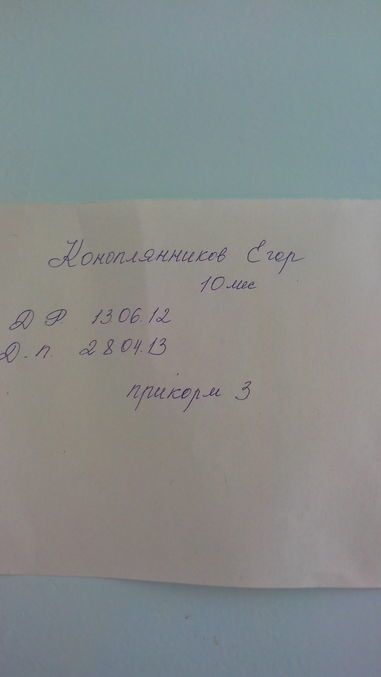 Коноплянников Егор
10 мес
Д Р. 13.06.12
Д. п. 28.04.13
прикорм 3